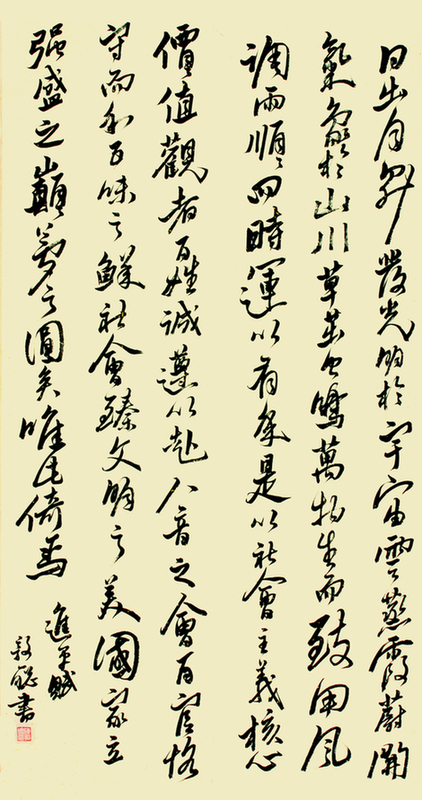 日出月升發光明於宇宙雲蒸霞蔚開
氣象於山川草茁蟲鳴萬物生而致用風
調雨順四時運以有年是以社會主義核心
價值觀者百姓誠遵以赴八音之會百官恪
守而和百味之鮮社會臻文明之美國家立
強盛之巔夢之圓矣唯此倚焉
進軍賦
聰書